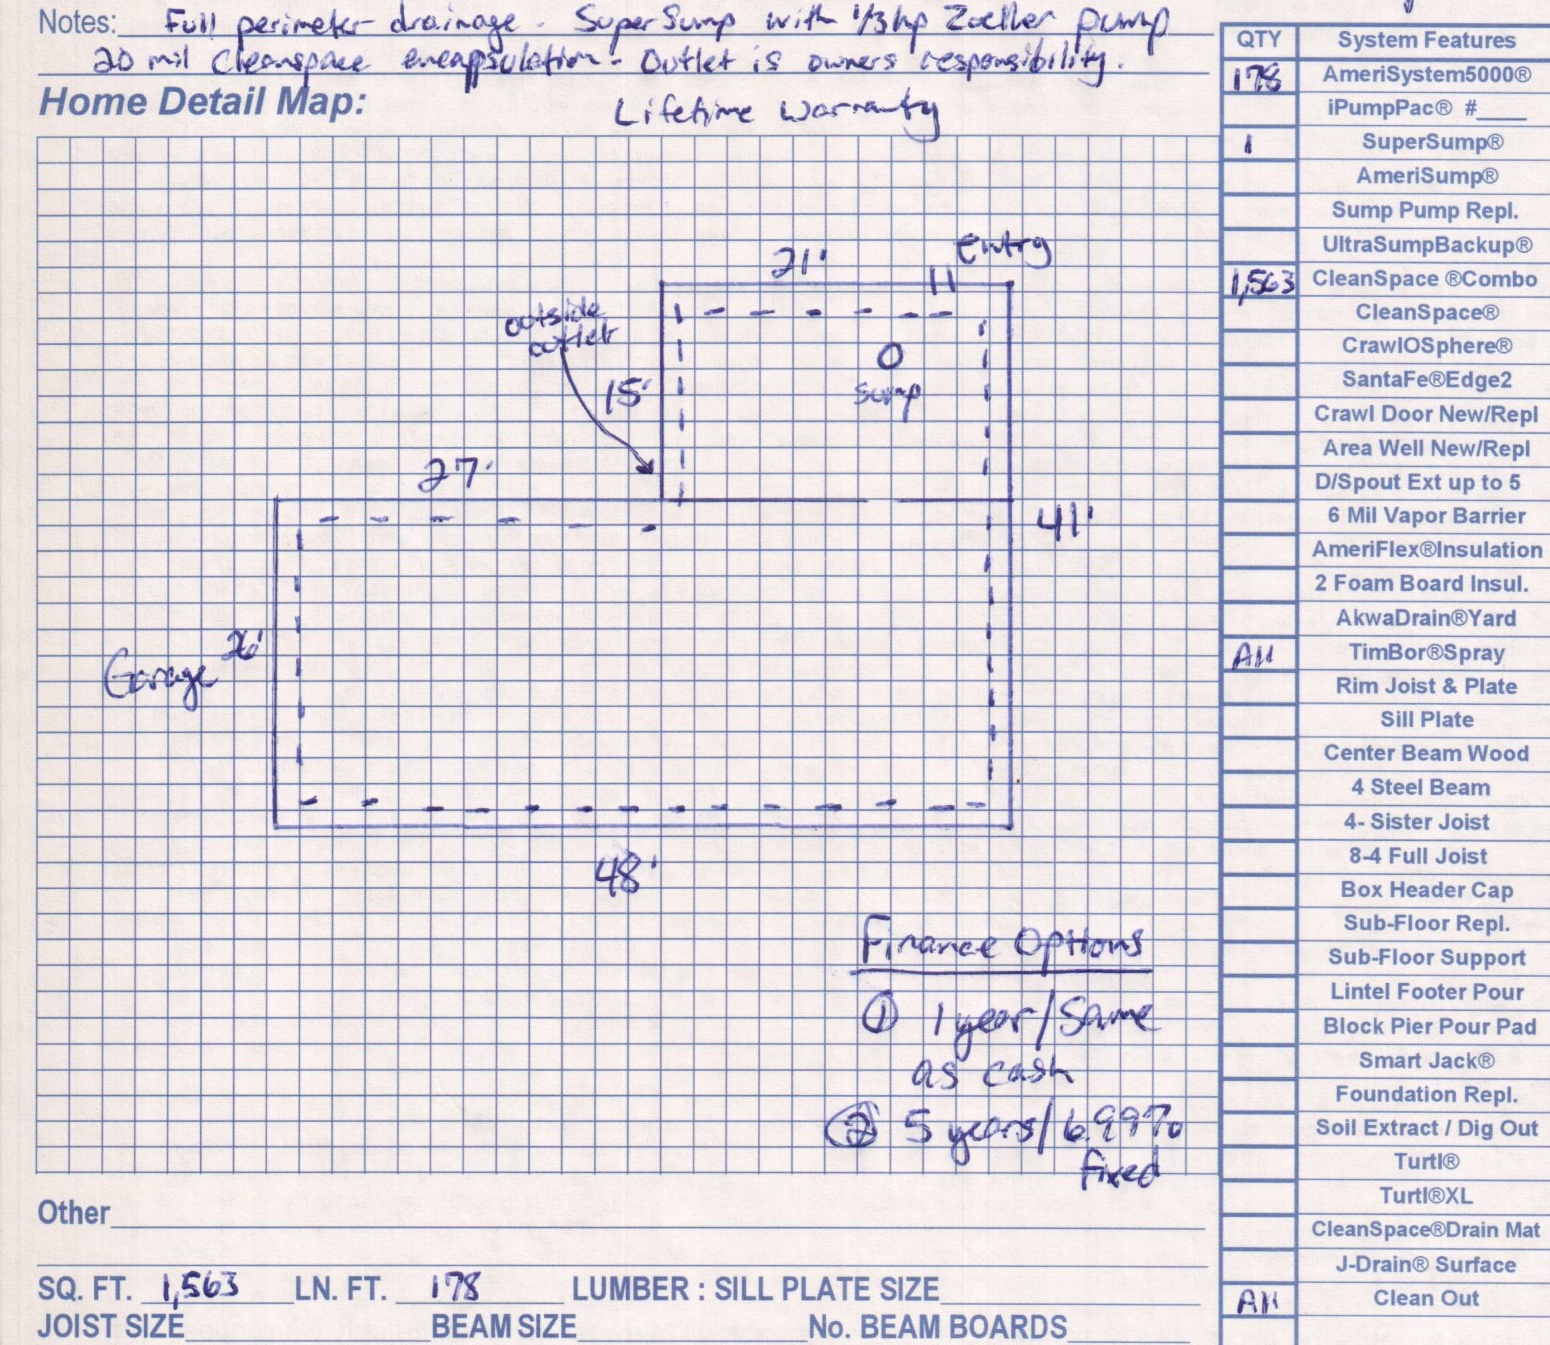 Notes: Full perimeter drainage. SuperSump with 1/3hp Zoeller pump
20 mil Cleanspace encapsulation - Outlet is owners responsibility.
Home Detail Map:
Lifetime Warranty
21'
Entry
outside
outlet
15'
sump
27'
41'
Garage 26'
48'
Finance Options
① 1 year/Same
as cash
② 5 years/6.99%
fixed
Other
SQ. FT. 1,563 LN. FT. 178 LUMBER : SILL PLATE SIZE
JOIST SIZE BEAM SIZE No. BEAM BOARDS
QTY System Features
178 AmeriSystem5000®
iPumpPac® #____
1 SuperSump®
AmeriSump®
Sump Pump Repl.
UltraSumpBackup®
1,563 CleanSpace ®Combo
CleanSpace®
CrawlOSphere®
SantaFe®Edge2
Crawl Door New/Repl
Area Well New/Repl
D/Spout Ext up to 5
6 Mil Vapor Barrier
AmeriFlex®Insulation
2 Foam Board Insul.
AkwaDrain®Yard
All TimBor®Spray
Rim Joist & Plate
Sill Plate
Center Beam Wood
4 Steel Beam
4- Sister Joist
8-4 Full Joist
Box Header Cap
Sub-Floor Repl.
Sub-Floor Support
Lintel Footer Pour
Block Pier Pour Pad
Smart Jack®
Foundation Repl.
Soil Extract / Dig Out
Turtl®
Turtl®XL
CleanSpace®Drain Mat
J-Drain® Surface
All Clean Out